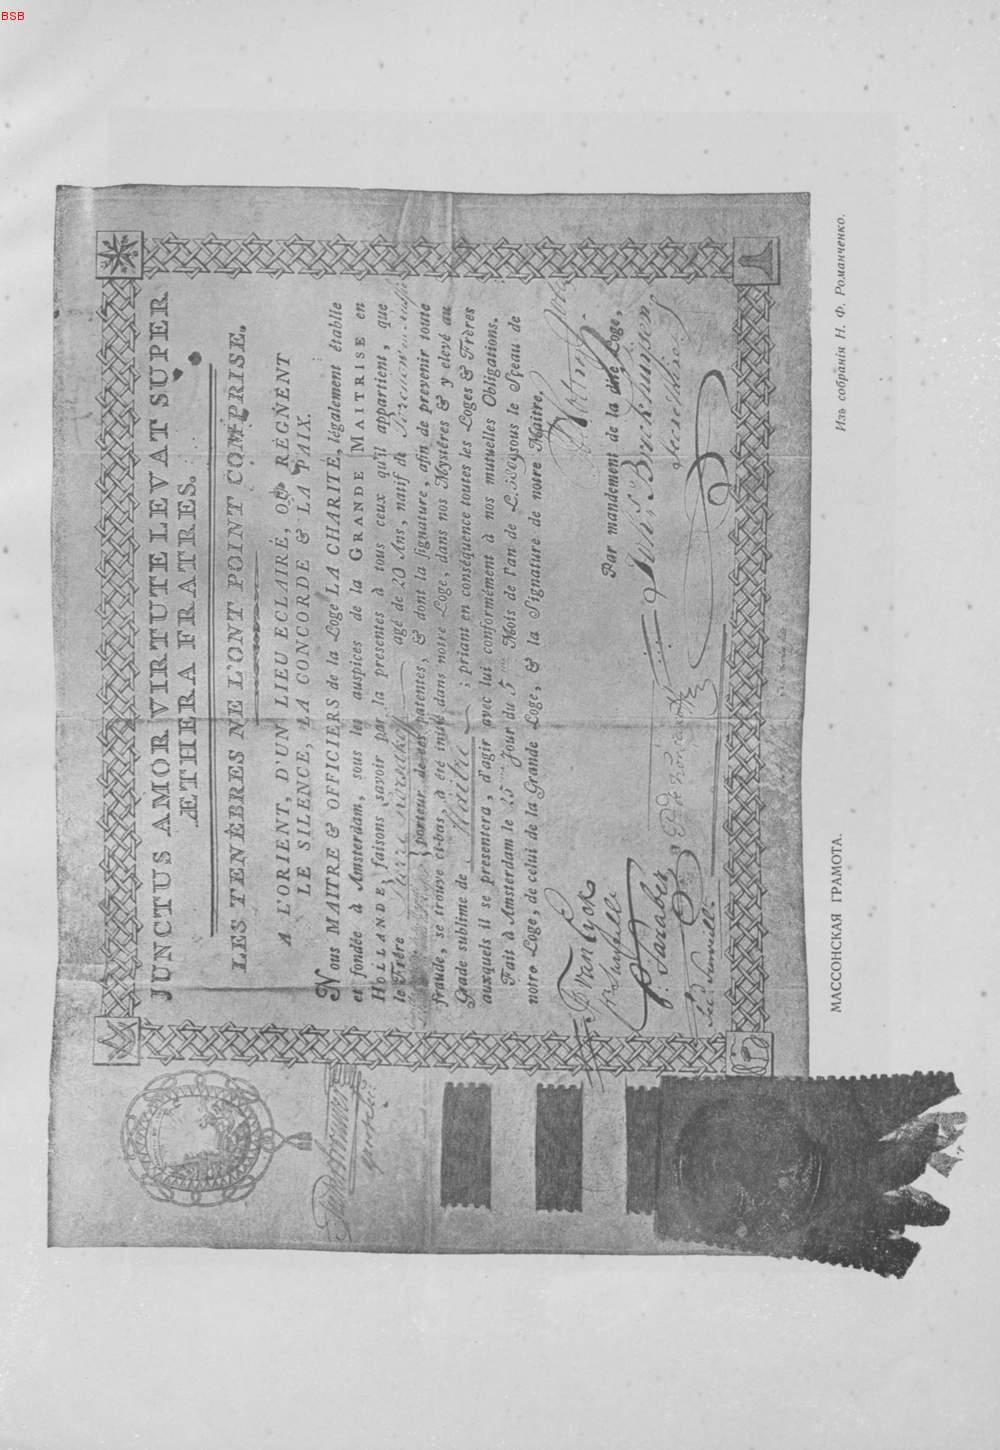 BSB
JUNCTUS AMOR VIRTUTE LEVAT SUPER
ÆTHERA FRATRES.
LES TENÉBRES NE L'ONT POINT COMPRISE.
A L'ORIENT, D'UN LIEU ECLAIRÉ, OU RÉGNENT
LE SILENCE, LA CONCORDE & LA PAIX.
Nous MAITRE & OFFICIERS de la Loge LA CHARITE, légalement établie
et fondée à Amsterdam, sous les auspices de la GRANDE MAITRISE en
HOLLANDE, faisons savoir par la presentes à tous ceux qu'il appartient, que
le Frère Pierre agé de 20 Ans, natif de
porteur de ces patentes, & dont la signature, afin de prevenir toute
fraude, se trouve ci-bas, a été initié dans notre Loge, dans nos Mystéres & y elevé au
Grade sublime de Maitre ; priant en conséquence toutes les Loges & Frères
auxquels il se presentera, d'agir avec lui conformément à nos mutuelles Obligations.
Fait à Amsterdam le 25 Jour du 5 Mois de l'an de L. sous le Sçeau de
notre Loge, de celui de la Grande Loge, & la Signature de notre Maitre.
Par mandement de la dite Loge,
F. van Dyck
P. Saraber
Secretaire
МАССОНСКАЯ ГРАМОТА.
Изъ собранія Н. Ф. Романченко.